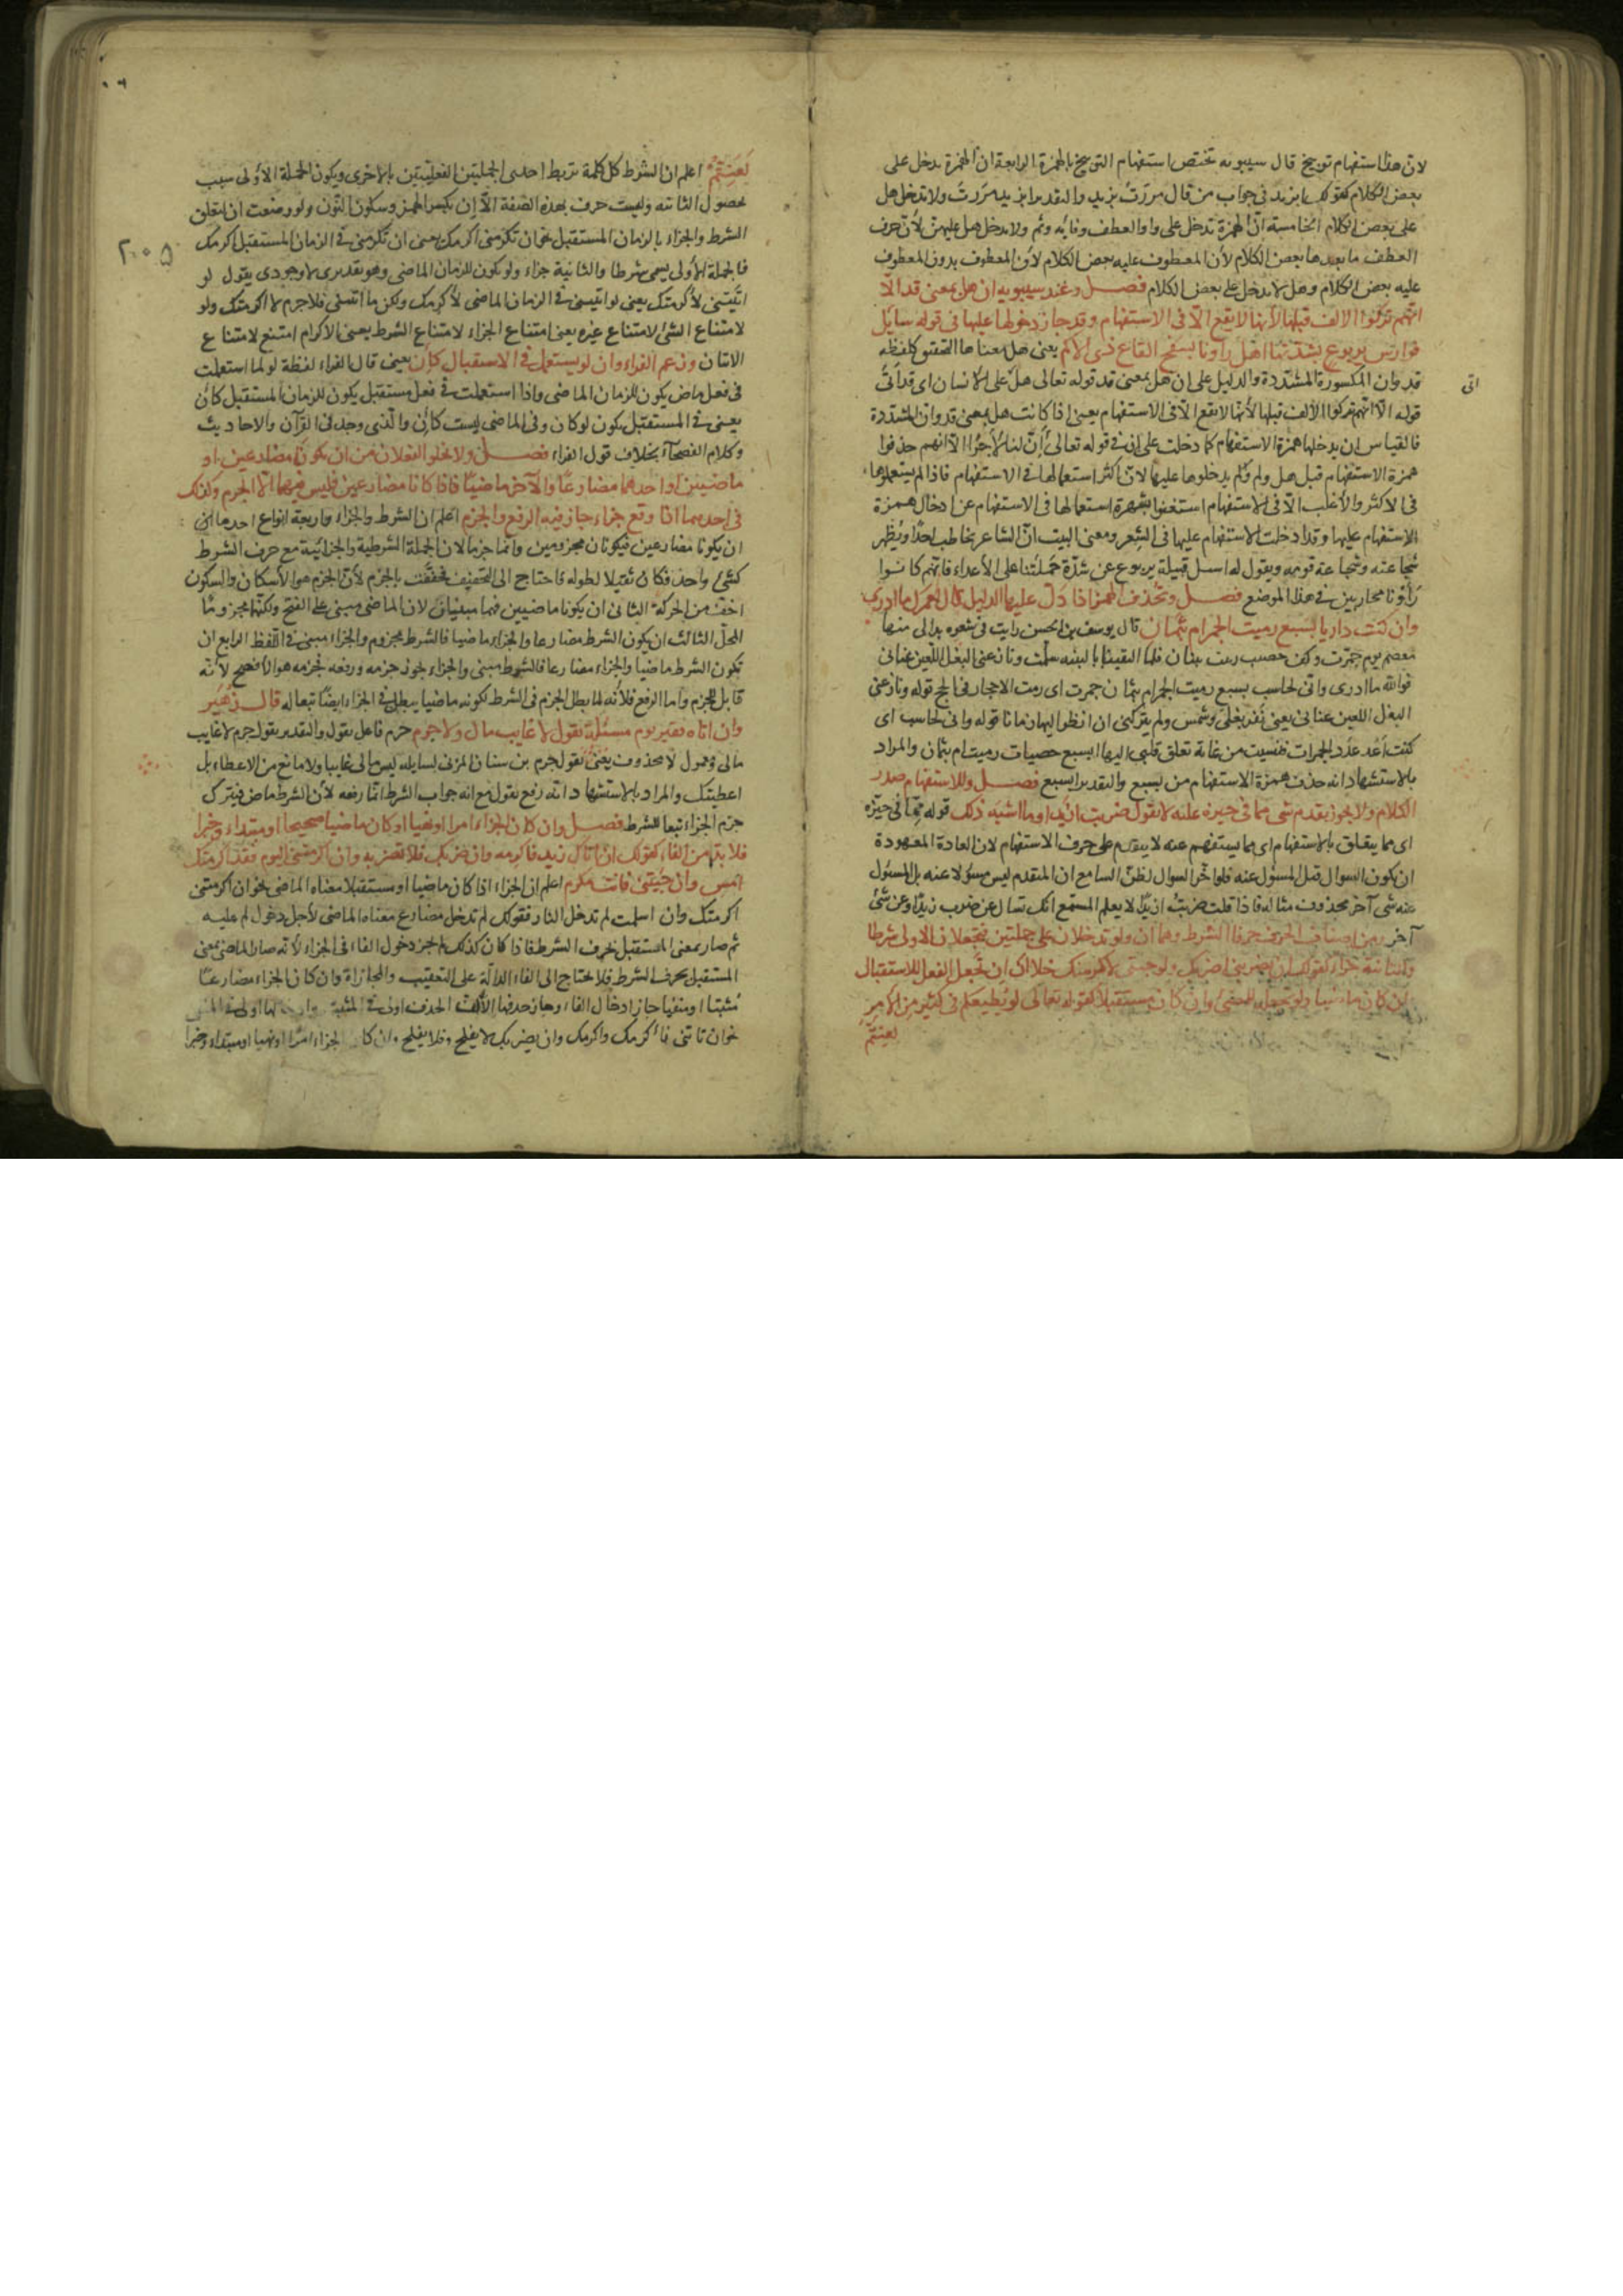 لانّ هذا استفهام توبيخ قال سيبويه تختص استفهام التوبيخ بالهمزة الرابعة ان الهمزة يدخل على
بعض الكلام كقولك ابزيد في جواب من قال مررت بزيد والتقدير ابزيد مررت ولا تدخل هل
على بعض الكلام الخامسة انّ الهمزة تدخل على واو العطف وفائه وثم ولا يدخل هل عليهن لأن حرف
العطف ما بعدها بعض الكلام لأن المعطوف عليه بعض الكلام لأن المعطوف بدون المعطوف
عليه بعض الكلام وهل لا يدخل على بعض الكلام فصل وعند سيبويه ان هل بمعنى قد الّا
انّهم تركوا الالف قبلها لأنها لا يقع الّا في الاستفهام وقد جاز دخولها عليها في قوله سايل
فوارس يربوع بشدّتنا اهل راونا بسفح القاع ذي الاكم يعني هل معناها التحقيق كلفظه
قد وان المكسورة المشدّدة والدليل على ان هل بمعنى قد قوله تعالى هل على الانسان اي قد اتى
اتى
قوله الّا انّهم تركوا الالف قبلها لأنها لا يقع الّا في الاستفهام يعني اذا كانت هل بمعنى قد وان المشدّدة
فالقياس ان يدخلها همزة الاستفهام كما دخلت على ان في قوله تعالى أإنّ لنا لأجرًا الّا انهم حذفوا
همزة الاستفهام قبل هل ولم يدخلوها عليها لانّ اكثر استعمالها في الاستفهام فاذا لم يستعملوها
في الاكثر والأغلب الّا في الاستفهام استغنوا بشهرة استعمالها في الاستفهام عن ادخال همزة
الاستفهام عليها وقد ادخلت الاستفهام عليها في الشعر ومعنى البيت انّ الشاعر يخاطب احدًا ويُظهر
شجاعته وشجاعة قومه ويقول له اسل قبيلة يربوع عن شدّة حملتنا على الأعداء فانّهم كانوا
رأونا محاربين في هذا الموضع فصل وتحذف الهمزة اذا دلّ عليها الدليل قال لعمرك ما ادري
وان كنت داريا بسبع رميت الجمر ام بثمان قال يوسف بن الحسن رايت في شعره بدا لي منها
معصم يوم جمّرت وكف خضيب زينت ببنان فلما التقينا بالثنية سلّمت ونازعني البغل اللعين عناني
فوالله ما ادري واني لحاسب بسبع رميت الجمر ام بثمان جمرت اي رمت الاحجار في الحج قوله ونازعني
البغل اللعين عناني يعني نفر بغلي وشمس ولم يتركني ان انظر اليها زمانا قوله واني لحاسب اي
كنت أعُد عدد الجمرات فنسيت من غاية تعلق قلبي اليها ابسبع حصيات رميت ام بثمان والمراد
بالاستشهاد انه حذف همزة الاستفهام من بسبع والتقدير ابسبع فصل وللاستفهام صدر
الكلام ولا يجوز تقدم شي مما في حيزه عليه لا تقول ضربت ازيدا وما اشبه ذلك قوله مما في حيزه
اي مما يتعلق بالاستفهام اي مما يستفهم عنه لا يتقدم على حرف الاستفهام لان العادة المعهودة
ان يكون السوال قبل المسئول عنه فلو اخّر السوال لظنّ السامع ان المتقدم ليس مسئولا عنه بل المسئول
عنه شي آخر محذوف مثاله فاذا قلت ضربت ازيدا لا يعلم المستمع انك تسال عن ضرب زيد او عن شئ
آخر ومن اصناف الحرف حرفا الشرط وهما ان ولو تدخلان على جملتين فتجعلان الاولى شرطا
والثانية جزاء كقولك ان تضربني اضربك ولو جيتني لاكرمتك خلا ان إن تجعل الفعل للاستقبال
وان كان ماضيا ولو تجعله للمضي وان كان مستقبلا كقوله تعالى لو يُطيعكم في كثير من الامر
لعنتّم
لَعَنِتُّمْ اعلم ان الشرط كل كلمة تربط احدى الجملتين الفعليّتين بالاخرى ويكون الجملة الأولى سبب
لحصول الثانية وليست حرف بهذه الصفة الّا إن بكسر الهمز وسكون النّون ولو وضعت ان لتعلق
الشرط والجزاء بالزمان المستقبل نحو ان تكرمني اكرمك يعني ان تكرمني في الزمان المستقبل اكرمك
٢٠٠٥
فالجملة الأولى يسمى شرطا والثانية جزاء ولو يكون للزمان الماضي وهو تقديري لا وجودي يقول لو
اتيتني لأكرمتك يعني لو اتيتني في الزمان الماضي لأكرمك ولكن ما اتيتني فلا جرم لا اكرمتك ولو
لامتناع الشئ لامتناع غيره يعني امتناع الجزاء لامتناع الشرط يعني الاكرام امتنع لامتناع
الاتيان وزعم الفراء وان لو يستعمل في الاستقبال كان يعني قال الفراء لفظة لو لما استعملت
في فعل ماض يكون للزمان الماضي واذا استعملت في فعل مستقبل يكون للزمان المستقبل كان
يعني في المستقبل يكون لو كان وفي الماضي ليست كان والّذي وجد في القرآن والاحاديث
وكلام الفصحاء بخلاف قول الفراء فصل ولا يخلو الفعلان من ان يكونا مضارعين او
ماضيين او احدهما مضارعا والآخر ماضيًا فاذا كانا مضارعين فليس فيهما الّا الجزم وكذلك
في احدهما اذا وقع جزاء جاز فيه الرفع والجزم اعلم ان الشرط والجزاء واربعة انواع احدها
ان يكونا مضارعين فيكونان مجزومين وانما جزما لان الجملة الشرطية والجزائيّة مع حرف الشرط
كشئ واحد فكان ثقيلا لطوله فاحتاج الى التخفيف فخففت بالجزم لأن الجزم هو الأسكان والسكون
اخف من الحركة الثاني ان يكونا ماضيين فهما مبنيان لان الماضي مبني على الفتح ولكنّهما مجزومتا
المحلّ الثالث ان يكون الشرط مضارعا والجزاء ماضيا فالشرط مجزوم والجزاء مبني في اللفظ الرابع ان
تكون الشرط ماضيا والجزاء مضارعا فالشرط مبني والجزاء يجوز جزمه ورفعه فجزمه هو الأفصح لأنّه
قابل للجزم واما الرفع فلأنّه لما بطل الجزم في الشرط لكونه ماضيا يبطل في الجزاء ايضًا تبعا له قال زهَير
وان اتاه فقير يوم مسئلة يقول لا غايب مالي ولا حرم حرم فاعل يقول والتقدير يقول حرم لا غايب
مالي ومفعول لا محذوف يعني يقول حرم بن سنان المزني لسايله ليس مالي غايبا ولا مانع من الاعطاء بل
اعطيتك والمراد بالاستشهاد انّه رفع يقول مع انه جواب الشرط انّما رفعه لأن الشرط ماض فيترك
جزم الجزاء تبعا للشرط فصل وان كان الجزاء امرا او نهيا او كان ماضيا صحيحا او مبتداء وخبرا
فلا بدّ من الفاء كقولك ان اتاك زيد فاكرمه وان ضربك فلا تضربه وان اكرمتني اليوم فقد اكرمتك
امس وان جيتني فانت مكرم اعلم ان الجزاء اذا كان ماضيا او مستقبلا معناه الماضي نحو ان اكرمتني
اكرمتك وان اسلمت لم تدخل النار فقولك لم تدخل مضارع معناه الماضي لأجل دخول لم عليه
ثم صار بمعنى المستقبل بحرف الشرط فاذا كان كذلك لم يجز دخول الفاء في الجزاء لأنه صار الماضي بمعنى
المستقبل بحرف الشرط فلا يحتاج الى الفاء الدالّة على التعقيب والمجازاة وان كان الجزاء مضارعًا
مُثبتا او منفيا جاز ادخال الفاء وجاز حذفها الّا أنّ الحذف اولى في المثبة اولى في المنفي
نحو ان تاتني فأكرمك واكرمك وان يضربك لا يفلح وفلا يفلح وان كا الجزاء امرًا او نهيا او مبتداء وخبرا